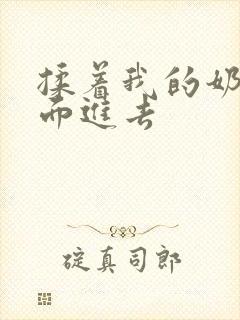 揉着我的奶
而进去
碇真司郎